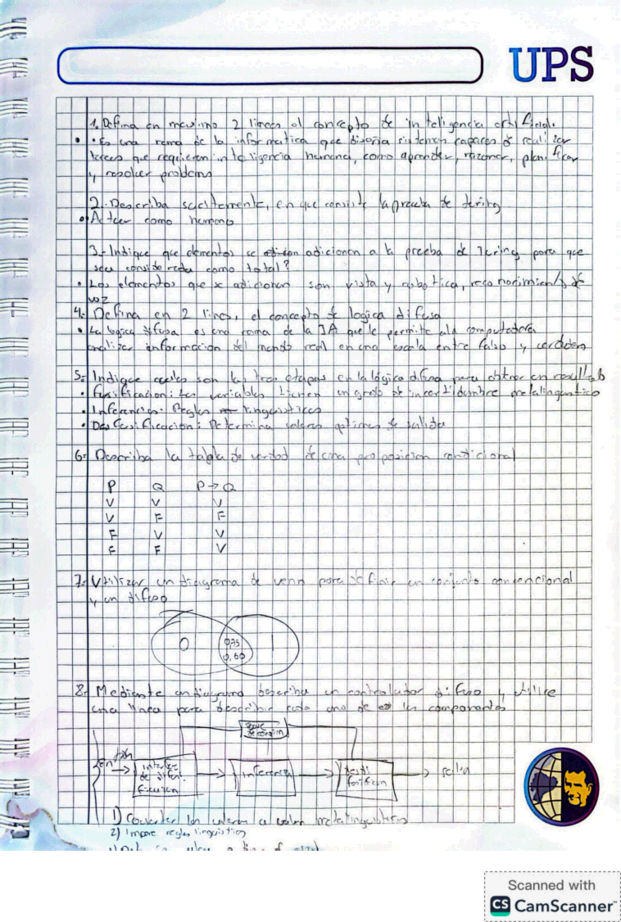 UPS
1. Defina en maximo 2 lineas el concepto de inteligencia artificial.
• Es una rama de la informatica que diseña sistemas capaces de realizar
tareas que requieren inteligencia humana, como aprender, razonar, planificar
y resolver problemas
2. Describa en que consiste la prueba de turing
• Actuar como humano
3.- Indique que elementos se adicionan a la prueba de Turing para que
sea considerada como total?
• Los elementos que se adicionan son vista y robotica, reconocimiento de
voz
4. Defina en 2 lineas, el concepto de logica difusa
• La logica difusa es una rama de la IA que le permite a la computadora
analizar informacion del mundo real en una escala entre falso y verdadero
5. Indique cuales son las tres etapas en la lógica difusa para obtener un resultado
• Fusificacion: Las variables tienen un grado de incertidumbre metalinguistico
• Inferencia: Reglas linguisticas
• Desfusificacion: Determina valores optimos de salida
6. Describa la tabla de verdad de una proposicion condicional
P Q P→Q
V V V
V F F
F V V
F F V
7. Utilizar un diagrama de venn para definir un conjunto convencional
y un difuso
0 0,75 1
0,60
8. Mediante un diagrama describa un controlador difuso y utilice
una linea para describir cada uno de los componentes
inferencia
1) Convertir los valores a valor metalinguistico
2) Impone reglas linguisticas
Scanned with
CS CamScanner